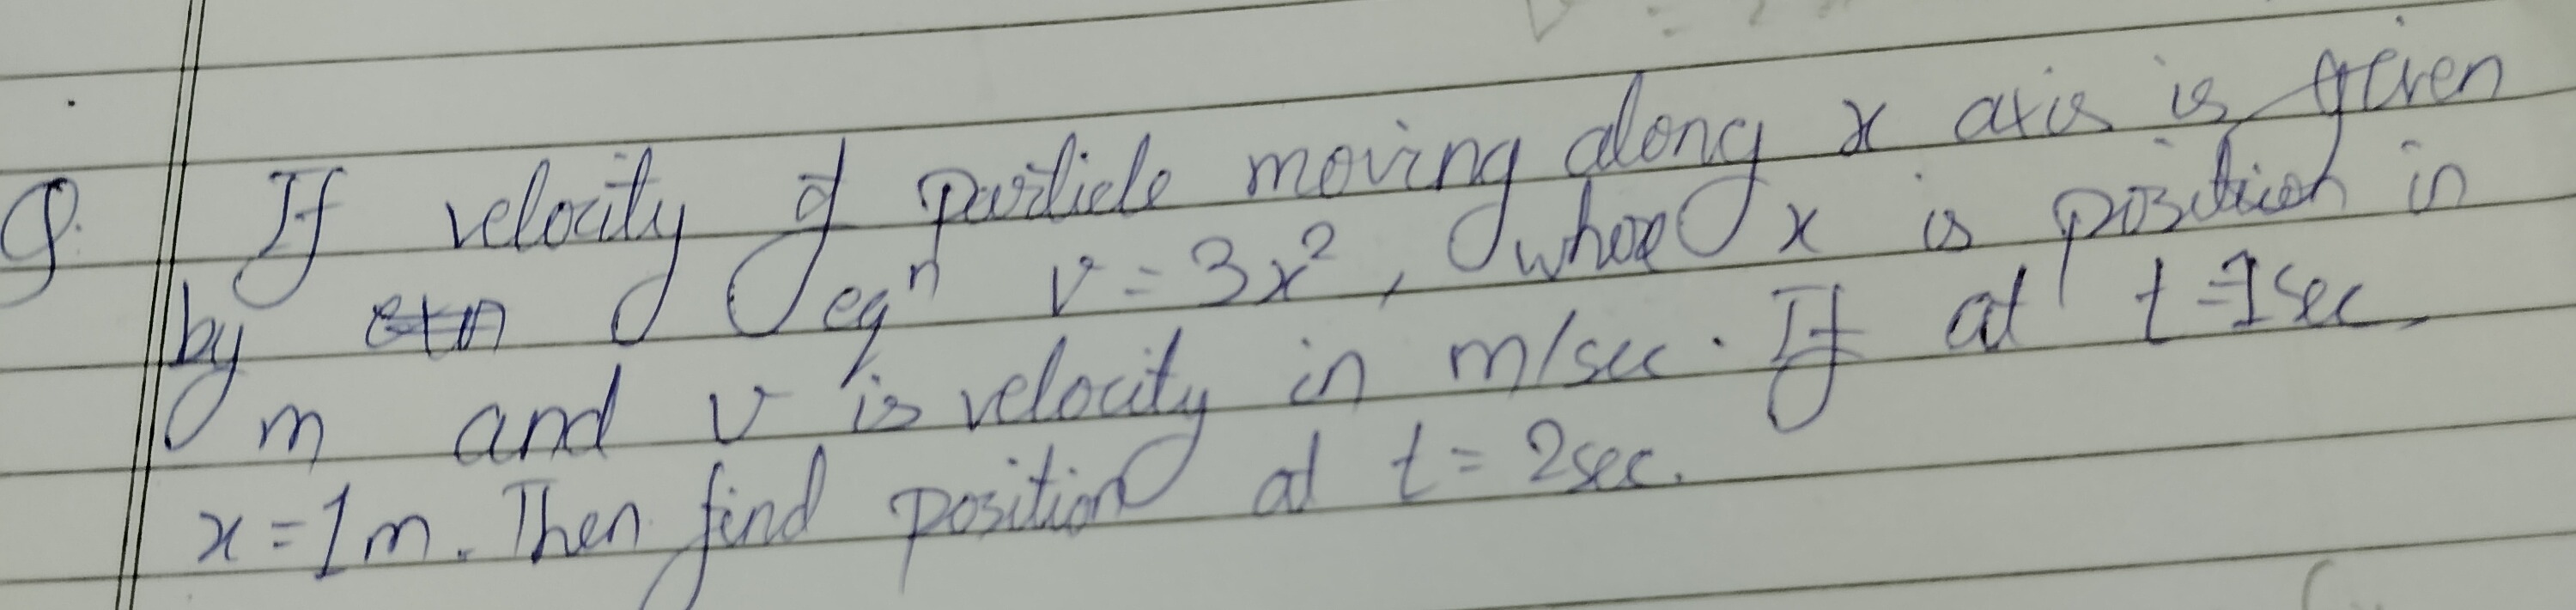 Q. If velocity of particle moving along x axis is given
by eqⁿ v = 3x², where x is position in
m and v is velocity in m/sec. If at t=1sec
x=1m. Then find position at t=2sec.